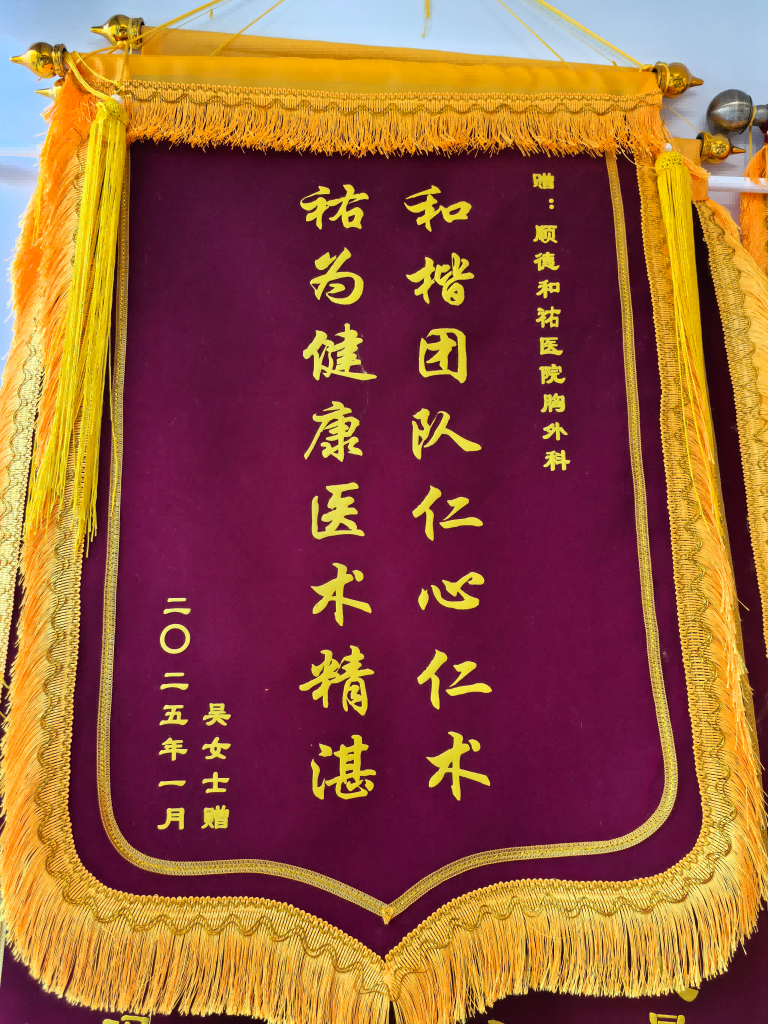 赠：顺德和祐医院胸外科
和楷团队仁心仁术
祐为健康医术精湛
吴女士赠
二〇二五年一月